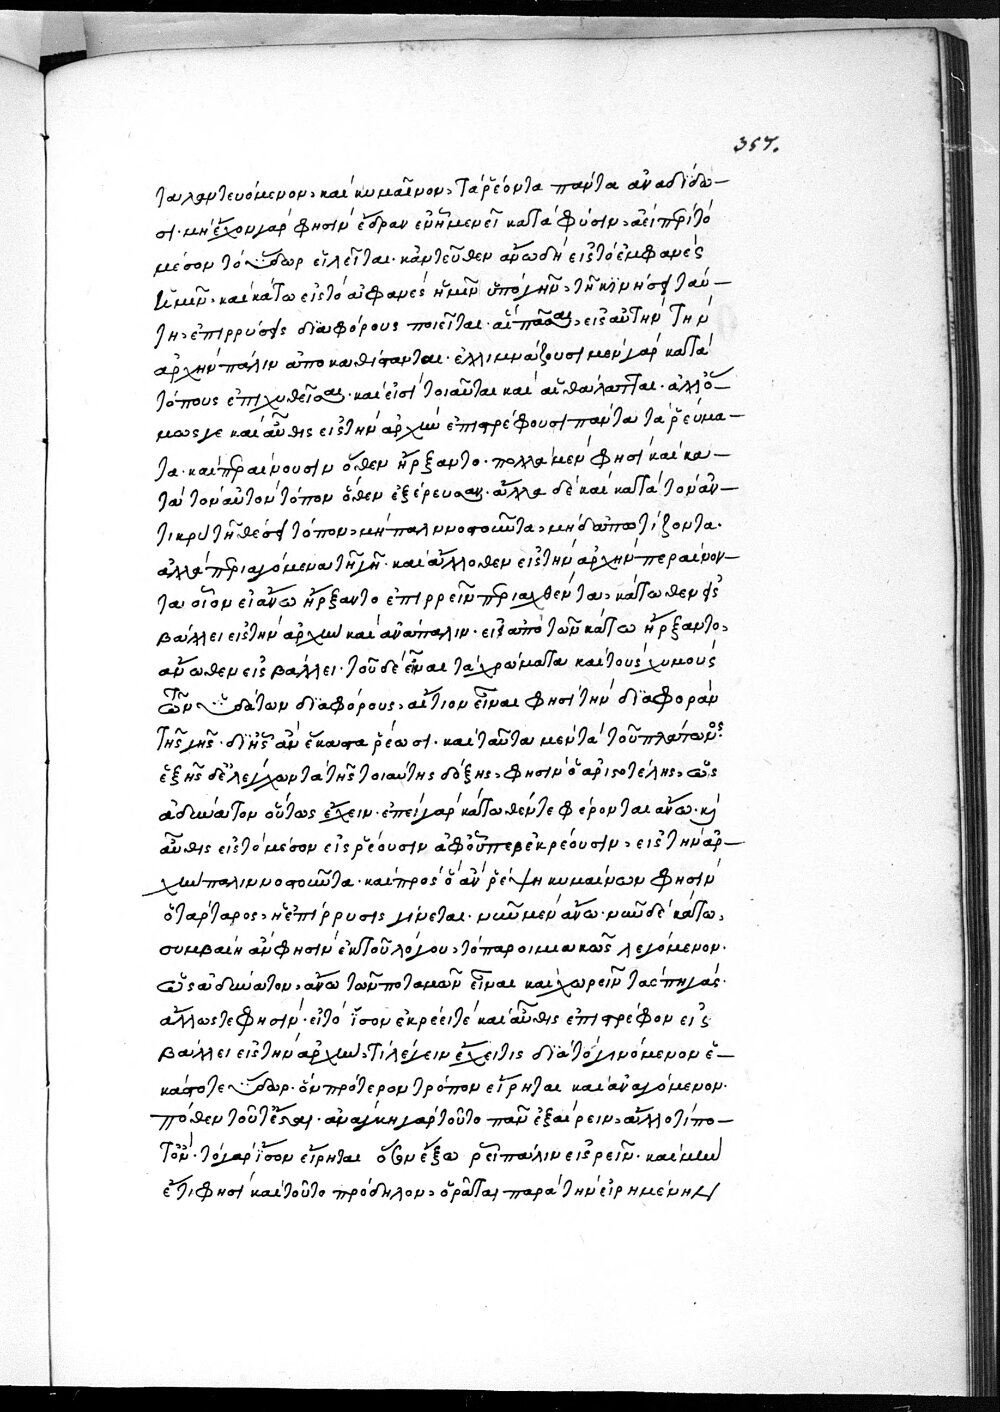 357.
ταλαντευόμενον, καὶ κυμαῖνον, τὰ ῥέοντα πάντα ἀναδίδω-
σι. μὴ ἔχον γάρ φησιν ἕδραν ἐν ᾗ μενεῖ κατὰ φύσιν, ἀεὶ περὶ τὸ
μέσον τὸ ὕδωρ εἰλεῖται. κἀντεῦθεν ἄνω δὴ εἰς τὸ ἐμφανὲς
ἡμῖν. καὶ κάτω εἰς τὸ ἀφανὲς ἡμῖν ὑπὸ γῆν, τῇ κινήσει ταύ-
τῃ, ἐπιρρύσεις διαφόρους ποιεῖται. αἳ πᾶσαι, εἰς αὐτὴν τὴν
ἀρχὴν πάλιν ἀποκαθίστανται. ἐλλιμνάζουσι μὲν γὰρ κατὰ
τόπους ἐπιχυθεῖσαι. καὶ εἰσὶ τοιαῦται καὶ αἱ θάλατται. ἀλλ' ὅ-
μως γε καὶ αὖθις εἰς τὴν ἀρχὴν ἐπιστρέφουσι πάντα τὰ ῥεύμα-
τα. καὶ περαίνουσιν ὅθεν ἤρξαντο. πολλὰ μὲν φησὶ καὶ κα-
τὰ τὸν αὐτὸν τόπον ὅθεν ἐξέρευσαν. ἄλλα δὲ καὶ κατὰ τὸν ἀν-
τικρὺ τῇ θέσει τόπον, μὴ παλινοστοῦντα, μηδ' ἀναποδίζοντα.
ἀλλὰ περιαγόμενα τῇ γῇ. καὶ ἄλλοθεν εἰς τὴν ἀρχὴν περαίνον-
τα οἷον εἰ ἄνω ἤρξαντο ἐπιρρεῖν περιαχθέντα, κάτωθεν εἰσ
βάλλει εἰς τὴν ἀρχὴν καὶ ἀνάπαλιν. εἰ ἀπὸ τῶν κάτω ἤρξαντο,
ἄνωθεν εἰσβάλλει. τοῦ δὲ εἶναι τὰ χρώματα καὶ τοὺς χυμοὺς
τῶν ὑδάτων διαφόρους, αἴτιον εἶναι φησὶ τὴν διαφορὰν
τῆς γῆς. δι' ἧς ἂν ἕκαστα ῥέωσι. καὶ ταῦτα μὲν τὰ τοῦ πλάτωνος.
ἑξῆς δ' ἐλέγχων τὰ τῆς τοιαύτης δόξης, φησὶν ὁ ἀριστοτέλης, ὡς
ἀδύνατον οὕτως ἔχειν. ἐπεὶ γὰρ κάτωθέν τε φέρονται ἄνω. καὶ
αὖθις εἰς τὸ μέσον εἰσρέουσιν ἀφ' οὗπερ ἐκρέουσιν, εἰς τὴν ἀρ-
χὴν παλινοστοῦντα. καὶ πρὸς ὃ ἂν ῥέψῃ κυμαίνων φησὶν
ὁ τάρταρος, ἡ ἐπίρρυσις γίνεται. νῦν μὲν ἄνω. νῦν δὲ κάτω,
συμβαίη ἂν φησὶν ἐκ τοῦ λόγου, τὸ παροιμιακῶς λεγόμενον.
ὡς ἀδύνατον, ἄνω τῶν ποταμῶν εἶναι καὶ χωρεῖν τὰς πηγάς.
ἄλλως τε φησὶν. εἰ τὸ ἴσον ἐκρέει τε καὶ αὖθις ἐπιστρέφον εἰς
βάλλει εἰς τὴν ἀρχὴν, τί λέγειν ἔχει τις διὰ τὸ γινόμενον ἑ-
κάστοτε ὕδωρ. ὃν πρότερον τρόπον εἴρηται καὶ ἀναγόμενον.
πόθεν τοῦτ' ἔσται. ἀνάγκη γὰρ τοῦτο πᾶν ἐξαίρειν, ἄλλο τί πο-
τ' ὄν. τὸ γὰρ ἴσον εἴρηται ὅθεν ἔξω ῥεῖ πάλιν εἰσρεῖν. καὶ μὴν
ἔτι φησὶ καὶ τοῦτο πρόδηλον, ὁρᾶται παρὰ τὴν εἰρημένην